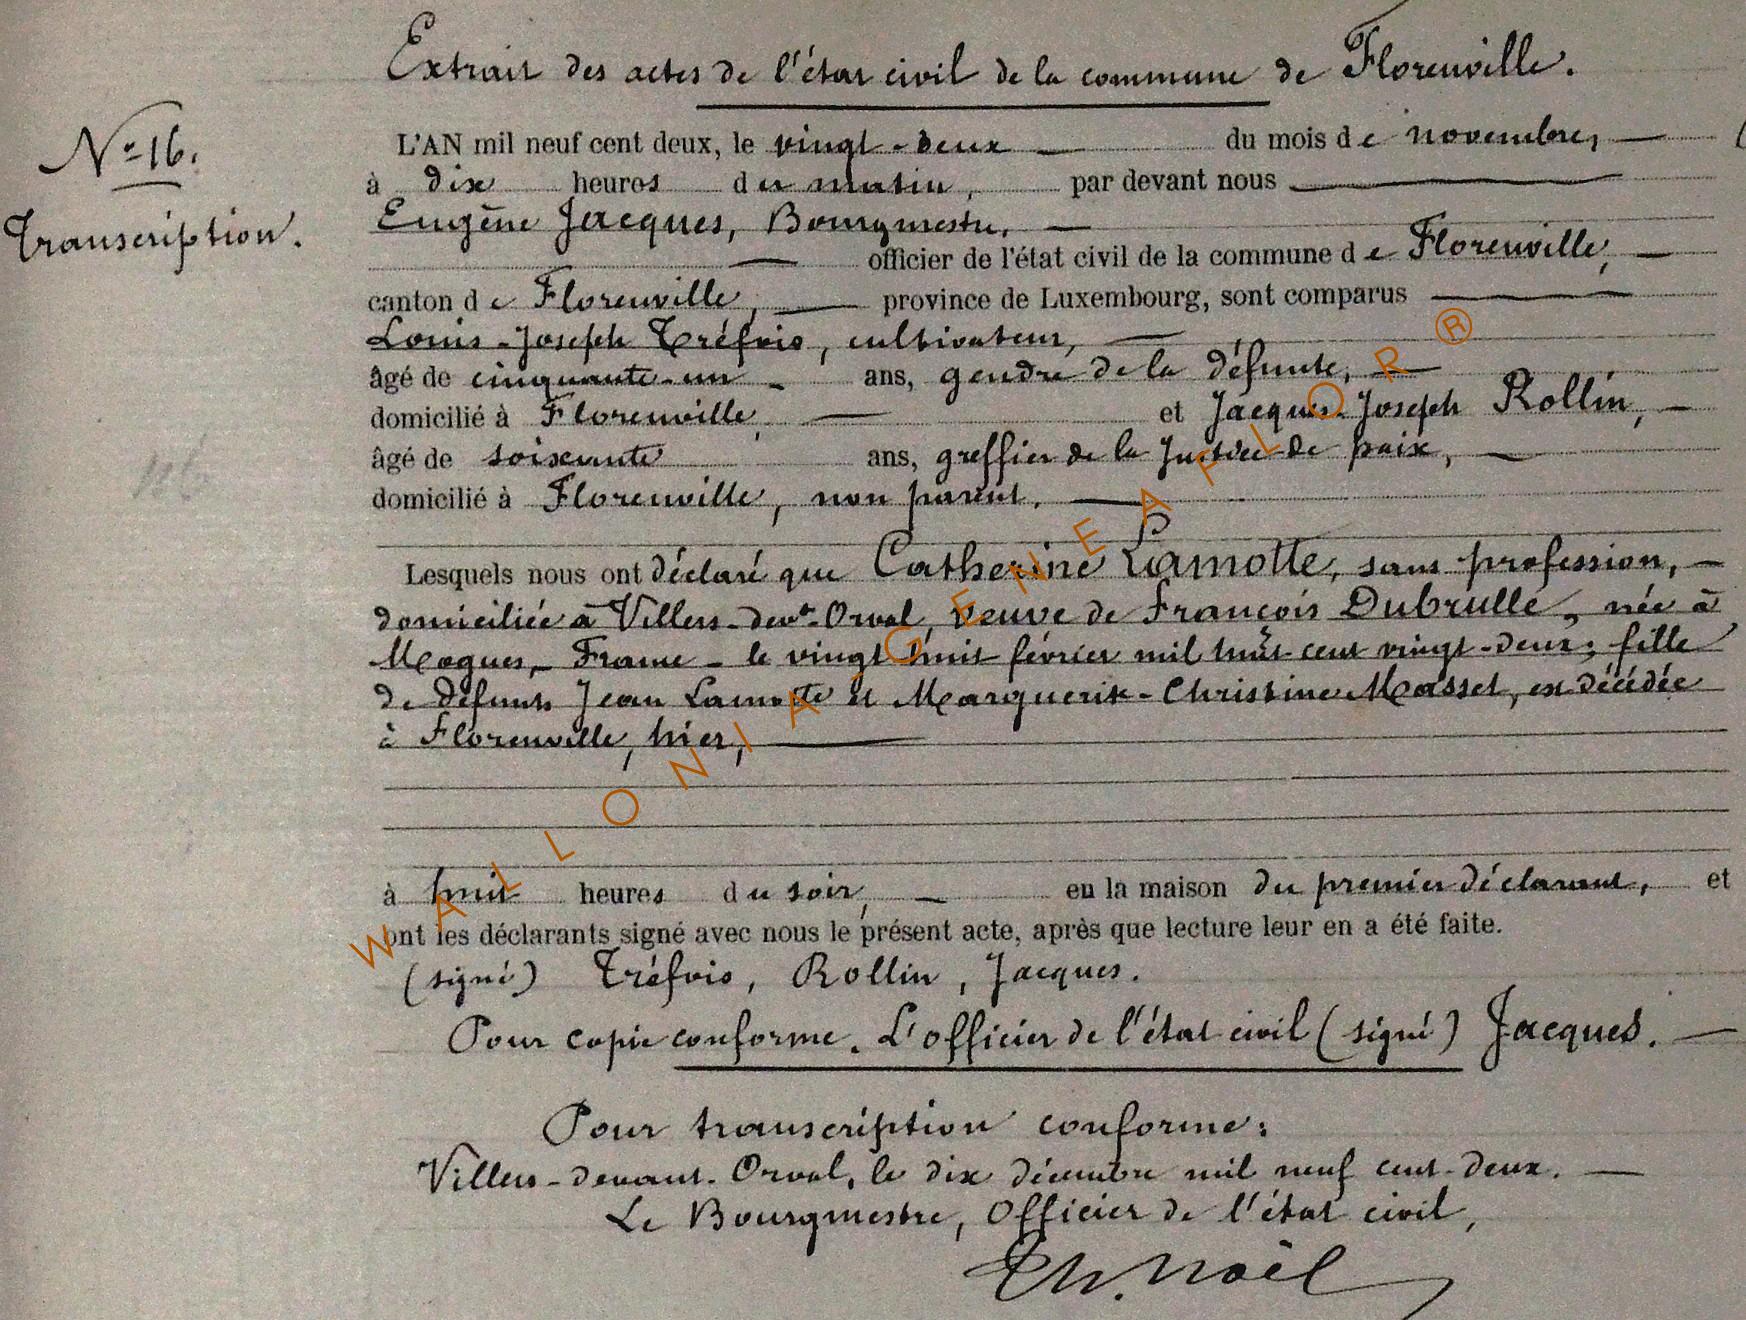 Extrait des actes de l'état civil de la commune de Florenville.
N° 16.
Transcription.
L'AN mil neuf cent deux, le vingt-deux du mois de novembre,
à dix heures du matin, par devant nous
Eugène Jacques, Bourgmestre,
officier de l'état civil de la commune de Florenville,
canton de Florenville, province de Luxembourg, sont comparus
Louis-Joseph Tréfois, cultivateur,
âgé de cinquante-un ans, gendre de la défunte,
domicilié à Florenville, et Jacques-Joseph Rollin,
âgé de soixante ans, greffier de la Justice de paix,
domicilié à Florenville, non parent.
Lesquels nous ont déclaré que Catherine Lamotte, sans profession,
domiciliée à Villers-devt-Orval, veuve de François Dubrulle, née à
Mogues, - France - le vingt huit février mil huit cent vingt-deux; fille
de défunts Jean Lamotte et Marguerite-Christine Masset, est décédée
à Florenville, hier,
à huit heures du soir, en la maison du premier déclarant, et
ont les déclarants signé avec nous le présent acte, après que lecture leur en a été faite.
(signé) Tréfois, Rollin, Jacques.
Pour copie conforme. L'officier de l'état civil (signé) Jacques.
Pour transcription conforme:
Villers-devant-Orval, le dix décembre mil neuf cent-deux.
Le Bourgmestre, Officier de l'état civil,
Th. Noël
WALLONIA GENEAFLOR ®